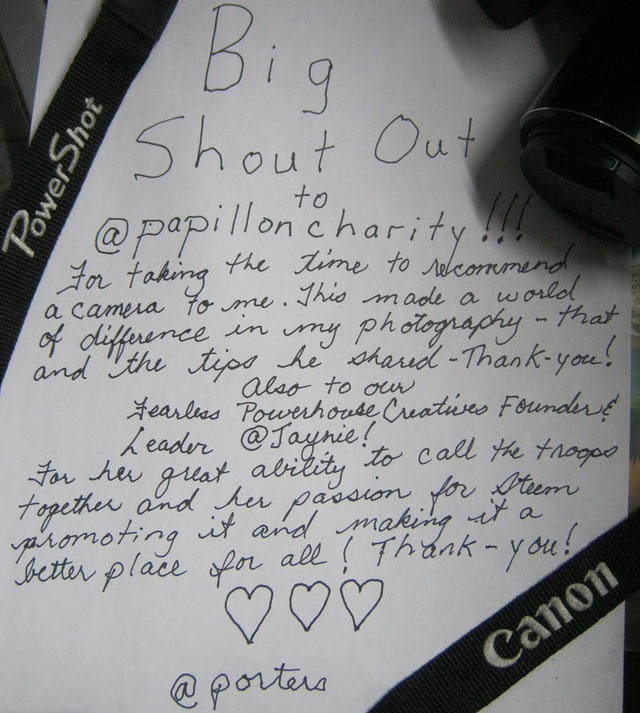 Big
Shout Out
to
@papilloncharity!!!
For taking the time to recommend
a camera to me. This made a world
of difference in my photography - that
and the tips he shared - Thank-you!
Also to our
Fearless Powerhouse Creatives Founder &
Leader @Jaynie!
For her great ability to call the troops
together and her passion for Steem
promoting it and making it a
better place for all! Thank-you!
@porters
PowerShot
Canon